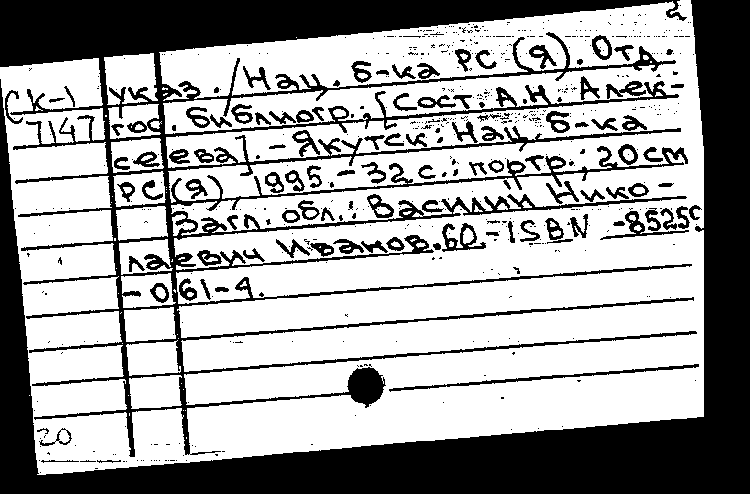 2
СК-1
7147
указ. / Нац. б-ка РС (Я). Отд.
гос. библиогр.; [Сост. А.Н. Алек-
сеева]. - Якутск: Нац. б-ка
РС (Я), 1995. - 32 с.: портр.; 20 см
Загл. обл.: Василий Нико-
лаевич Иванов. 60. - ISBN -85259
-061-4.
20